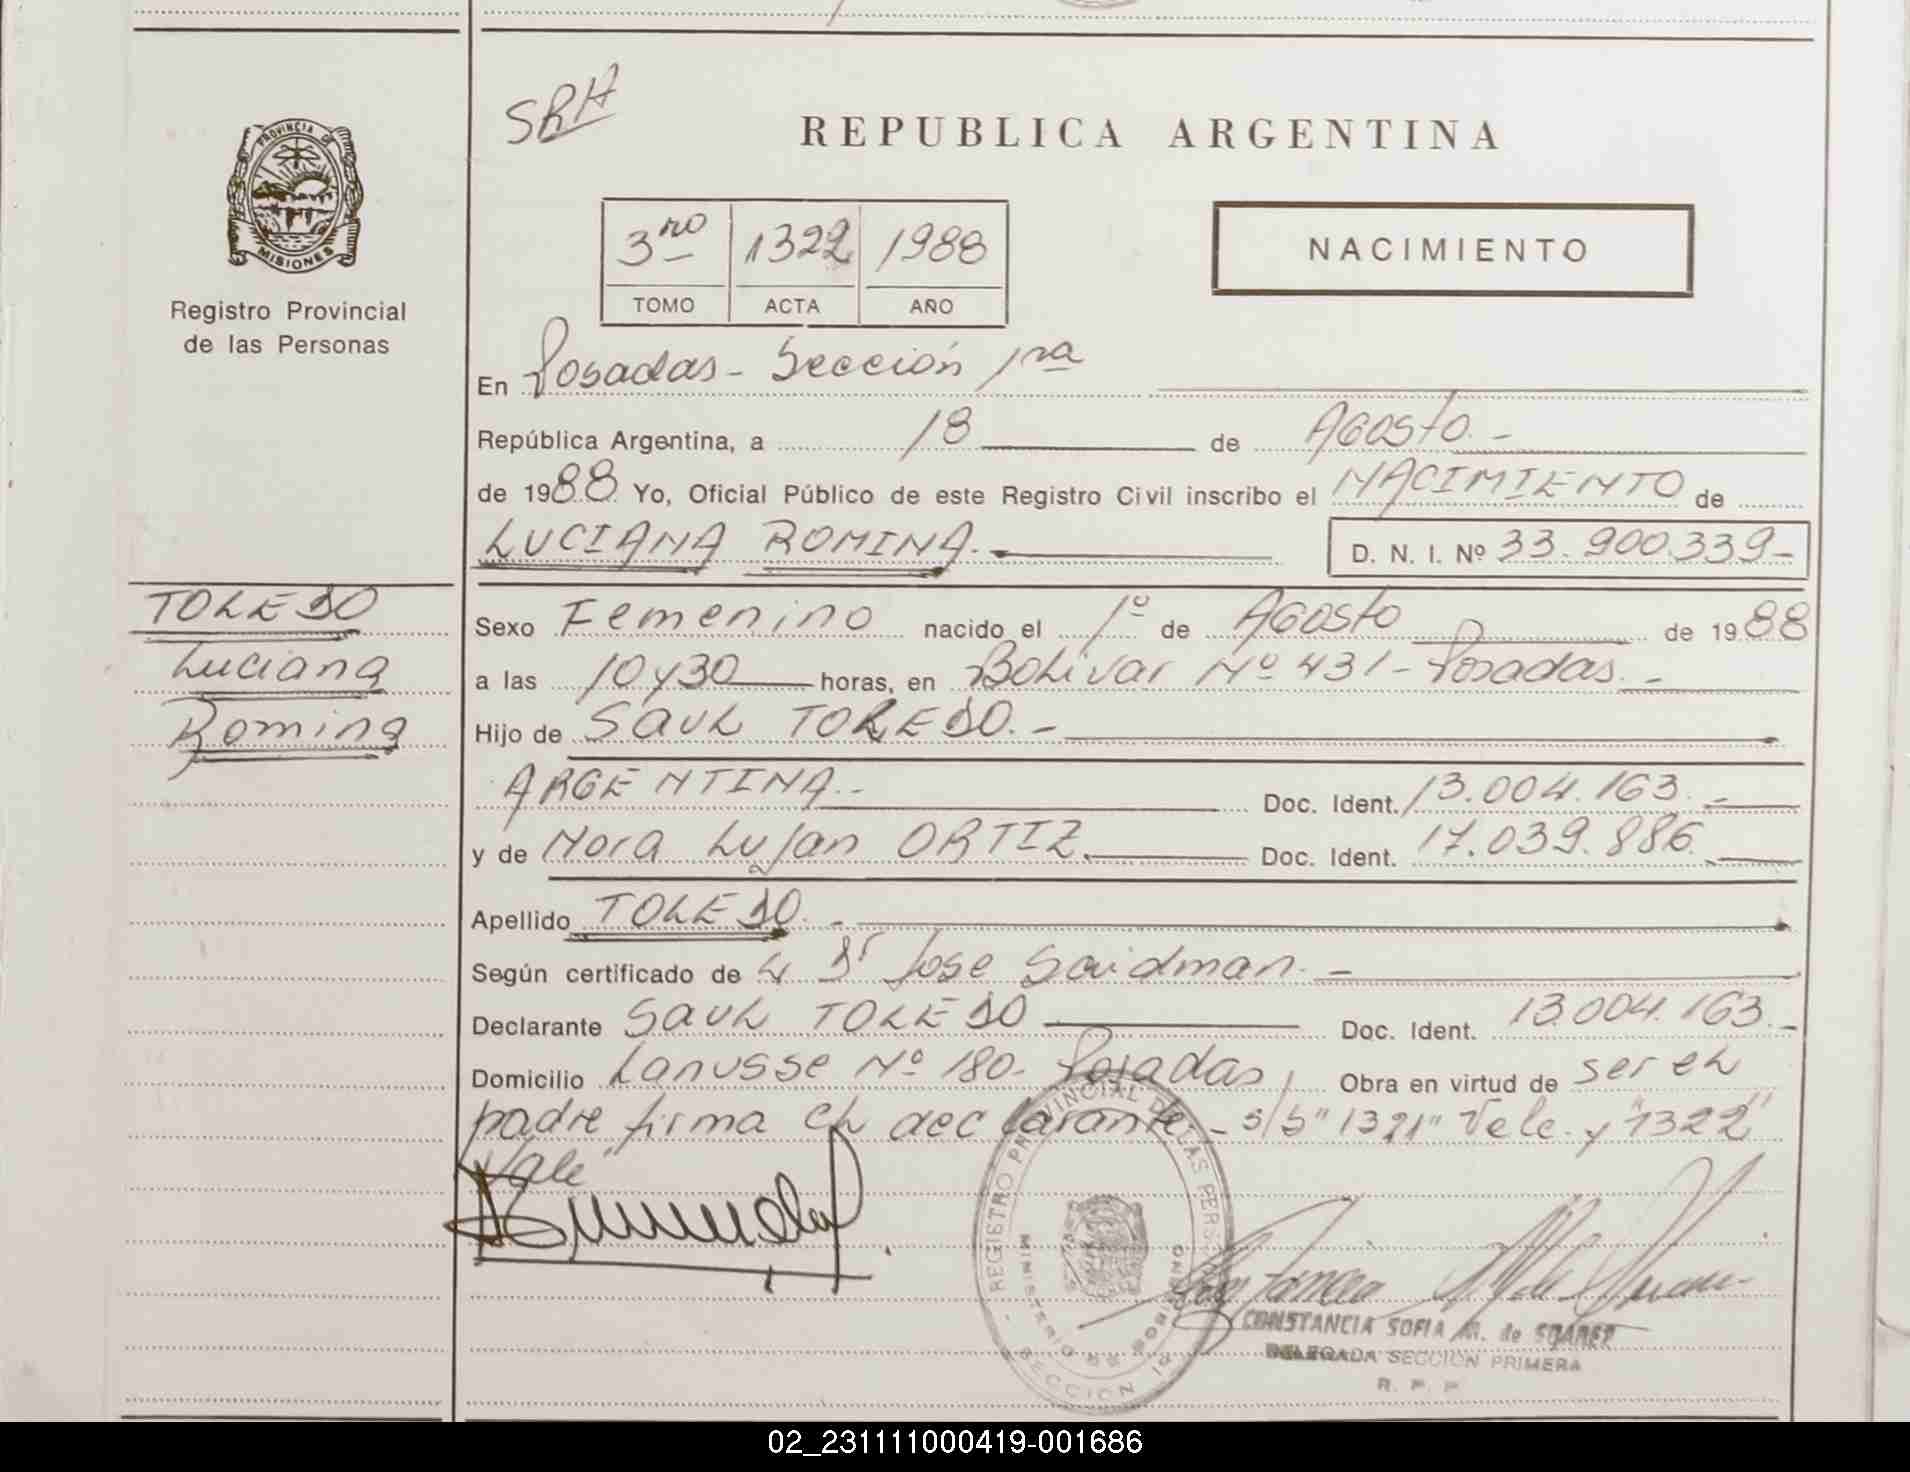 SRH
REPUBLICA ARGENTINA
PROVINCIA DE
MISIONES
Registro Provincial
de las Personas
3ro 1322 1988
TOMO ACTA AÑO
NACIMIENTO
En Posadas - Sección 1ra
República Argentina, a 18 de Agosto.-
de 1988 Yo, Oficial Público de este Registro Civil inscribo el NACIMIENTO de
LUCIANA ROMINA.- D. N. I. Nº 33.900.339-
TOLEDO
Luciana
Romina
Sexo Femenino nacido el 1º de Agosto de 1988
a las 10 y 30 horas, en Bolivar Nº 431 - Posadas.-
Hijo de SAUL TOLEDO.-
ARGENTINA.- Doc. Ident. 13.004.163.-
y de Nora Lujan ORTIZ. Doc. Ident. 17.039.886.
Apellido TOLEDO.-
Según certificado de Dr Jose Saidman.-
Declarante SAUL TOLEDO Doc. Ident. 13.004.163.-
Domicilio Lanusse Nº 180- Posadas Obra en virtud de ser el
padre firma el declarante.- s/b "1321" Vale. y "1322"
Vale
REGISTRO PROVINCIAL DE LAS PERSONAS
MINISTERIO DE GOBIERNO
SECCION
CONSTANCIA SOFIA M. de SUAREZ
DELEGADA SECCION PRIMERA
R. P. P.
02_231111000419-001686